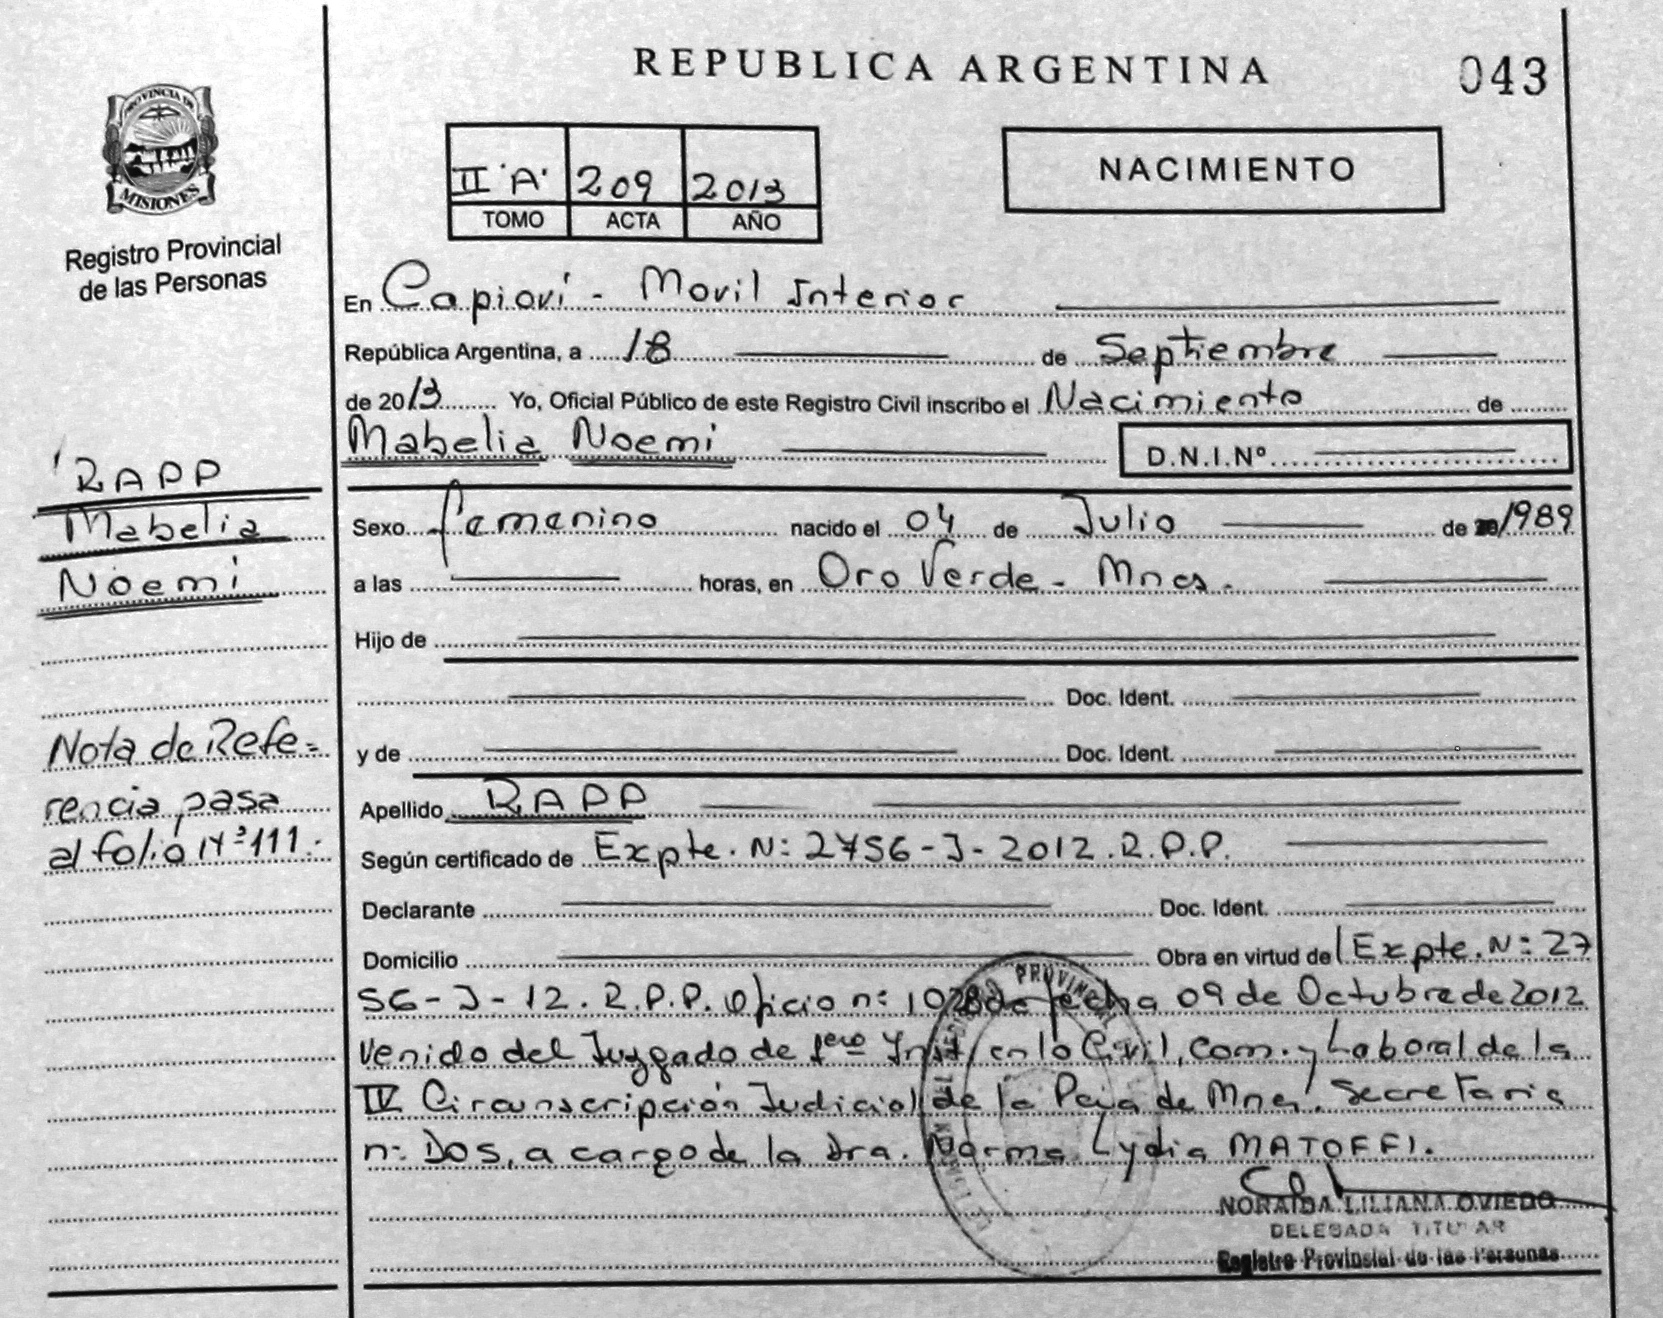 REPUBLICA ARGENTINA
043
PROVINCIA DE
MISIONES
Registro Provincial
de las Personas
II "A" 209 2013
TOMO ACTA AÑO
NACIMIENTO
En Capioví - Movil Interior
República Argentina, a 18 de Septiembre
de 2013 Yo, Oficial Público de este Registro Civil inscribo el Nacimiento de
Mabelia Noemi D.N.I.Nº
RAPP
Mabelia
Noemi
Sexo femenino nacido el 04 de Julio de 1989
a las horas, en Oro Verde - Mnes.
Hijo de
Doc. Ident.
y de Doc. Ident.
Nota de Refe=
rencia pasa
al folio Nº 111.-
Apellido RAPP
Según certificado de Expte. Nº 2756-J-2012.R.P.P.
Declarante Doc. Ident.
Domicilio Obra en virtud del Expte. Nº 27
56-J-12. R.P.P. Oficio nº 1028 de fecha 09 de Octubre de 2012
venido del Juzgado de 1era Inst. en lo Civil, Com. y Laboral de la
IV Circunscripción Judicial de la Pcia de Mnes, Secretaria
nº Dos, a cargo de la Dra. Norma Lydia MATOFFI.
PROVINCIAL
NORAIDA LILIANA OVIEDO
DELEGADA TITULAR
Registro Provincial de las Personas